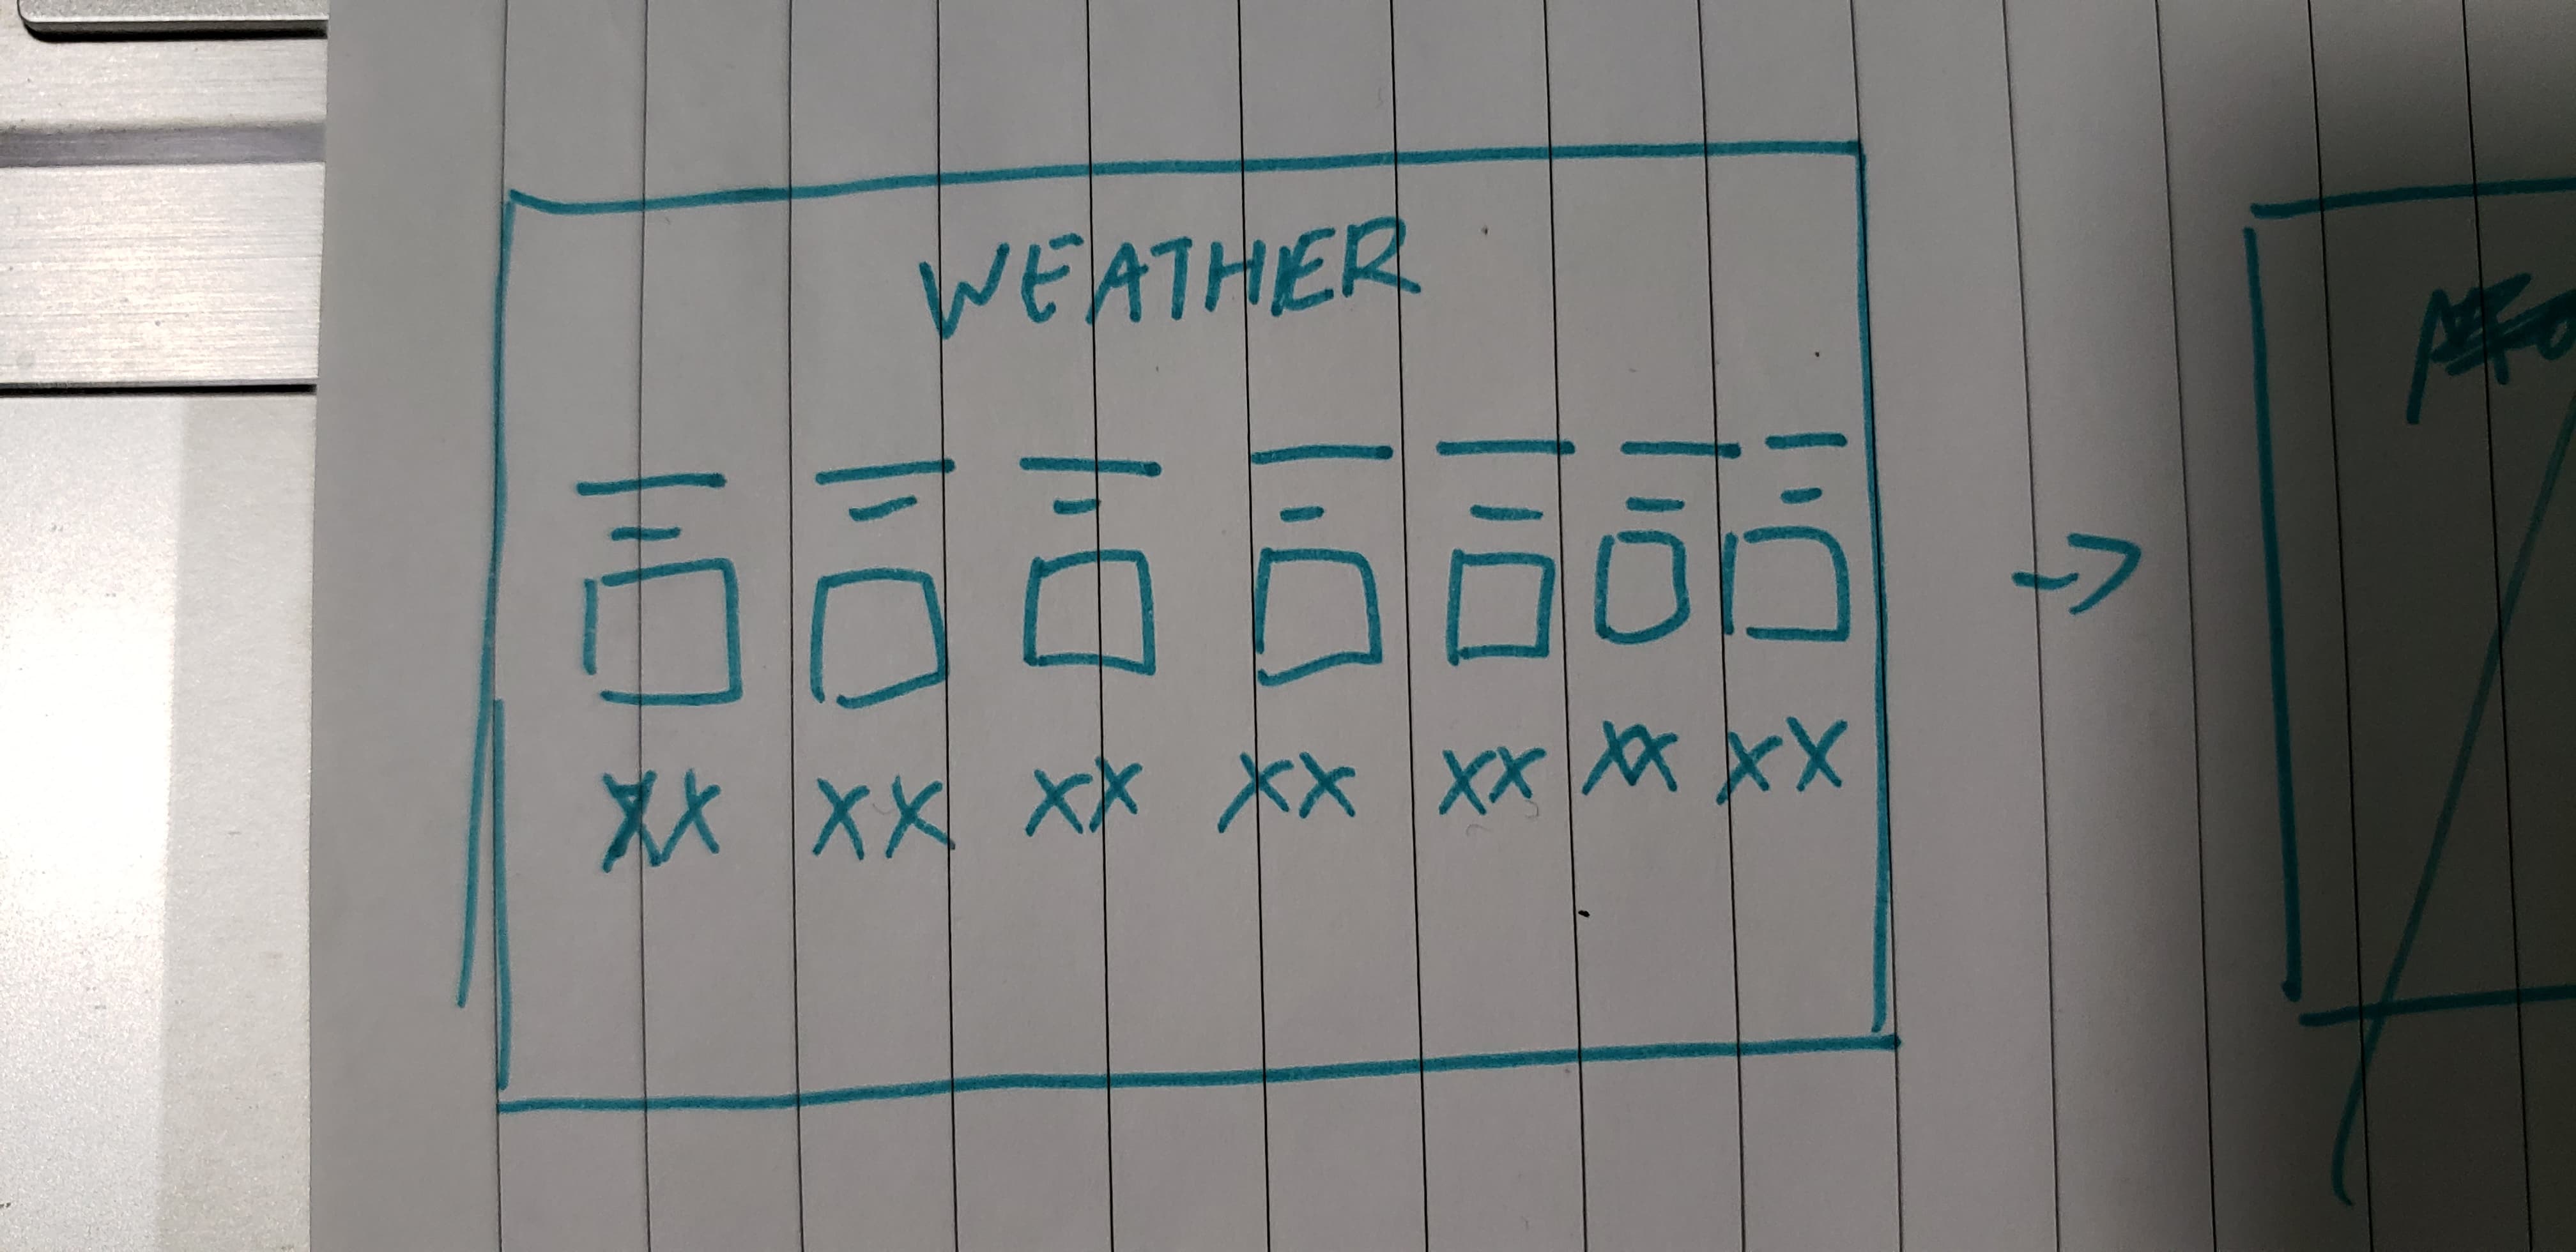 WEATHER
XX XX XX XX XX XX XX